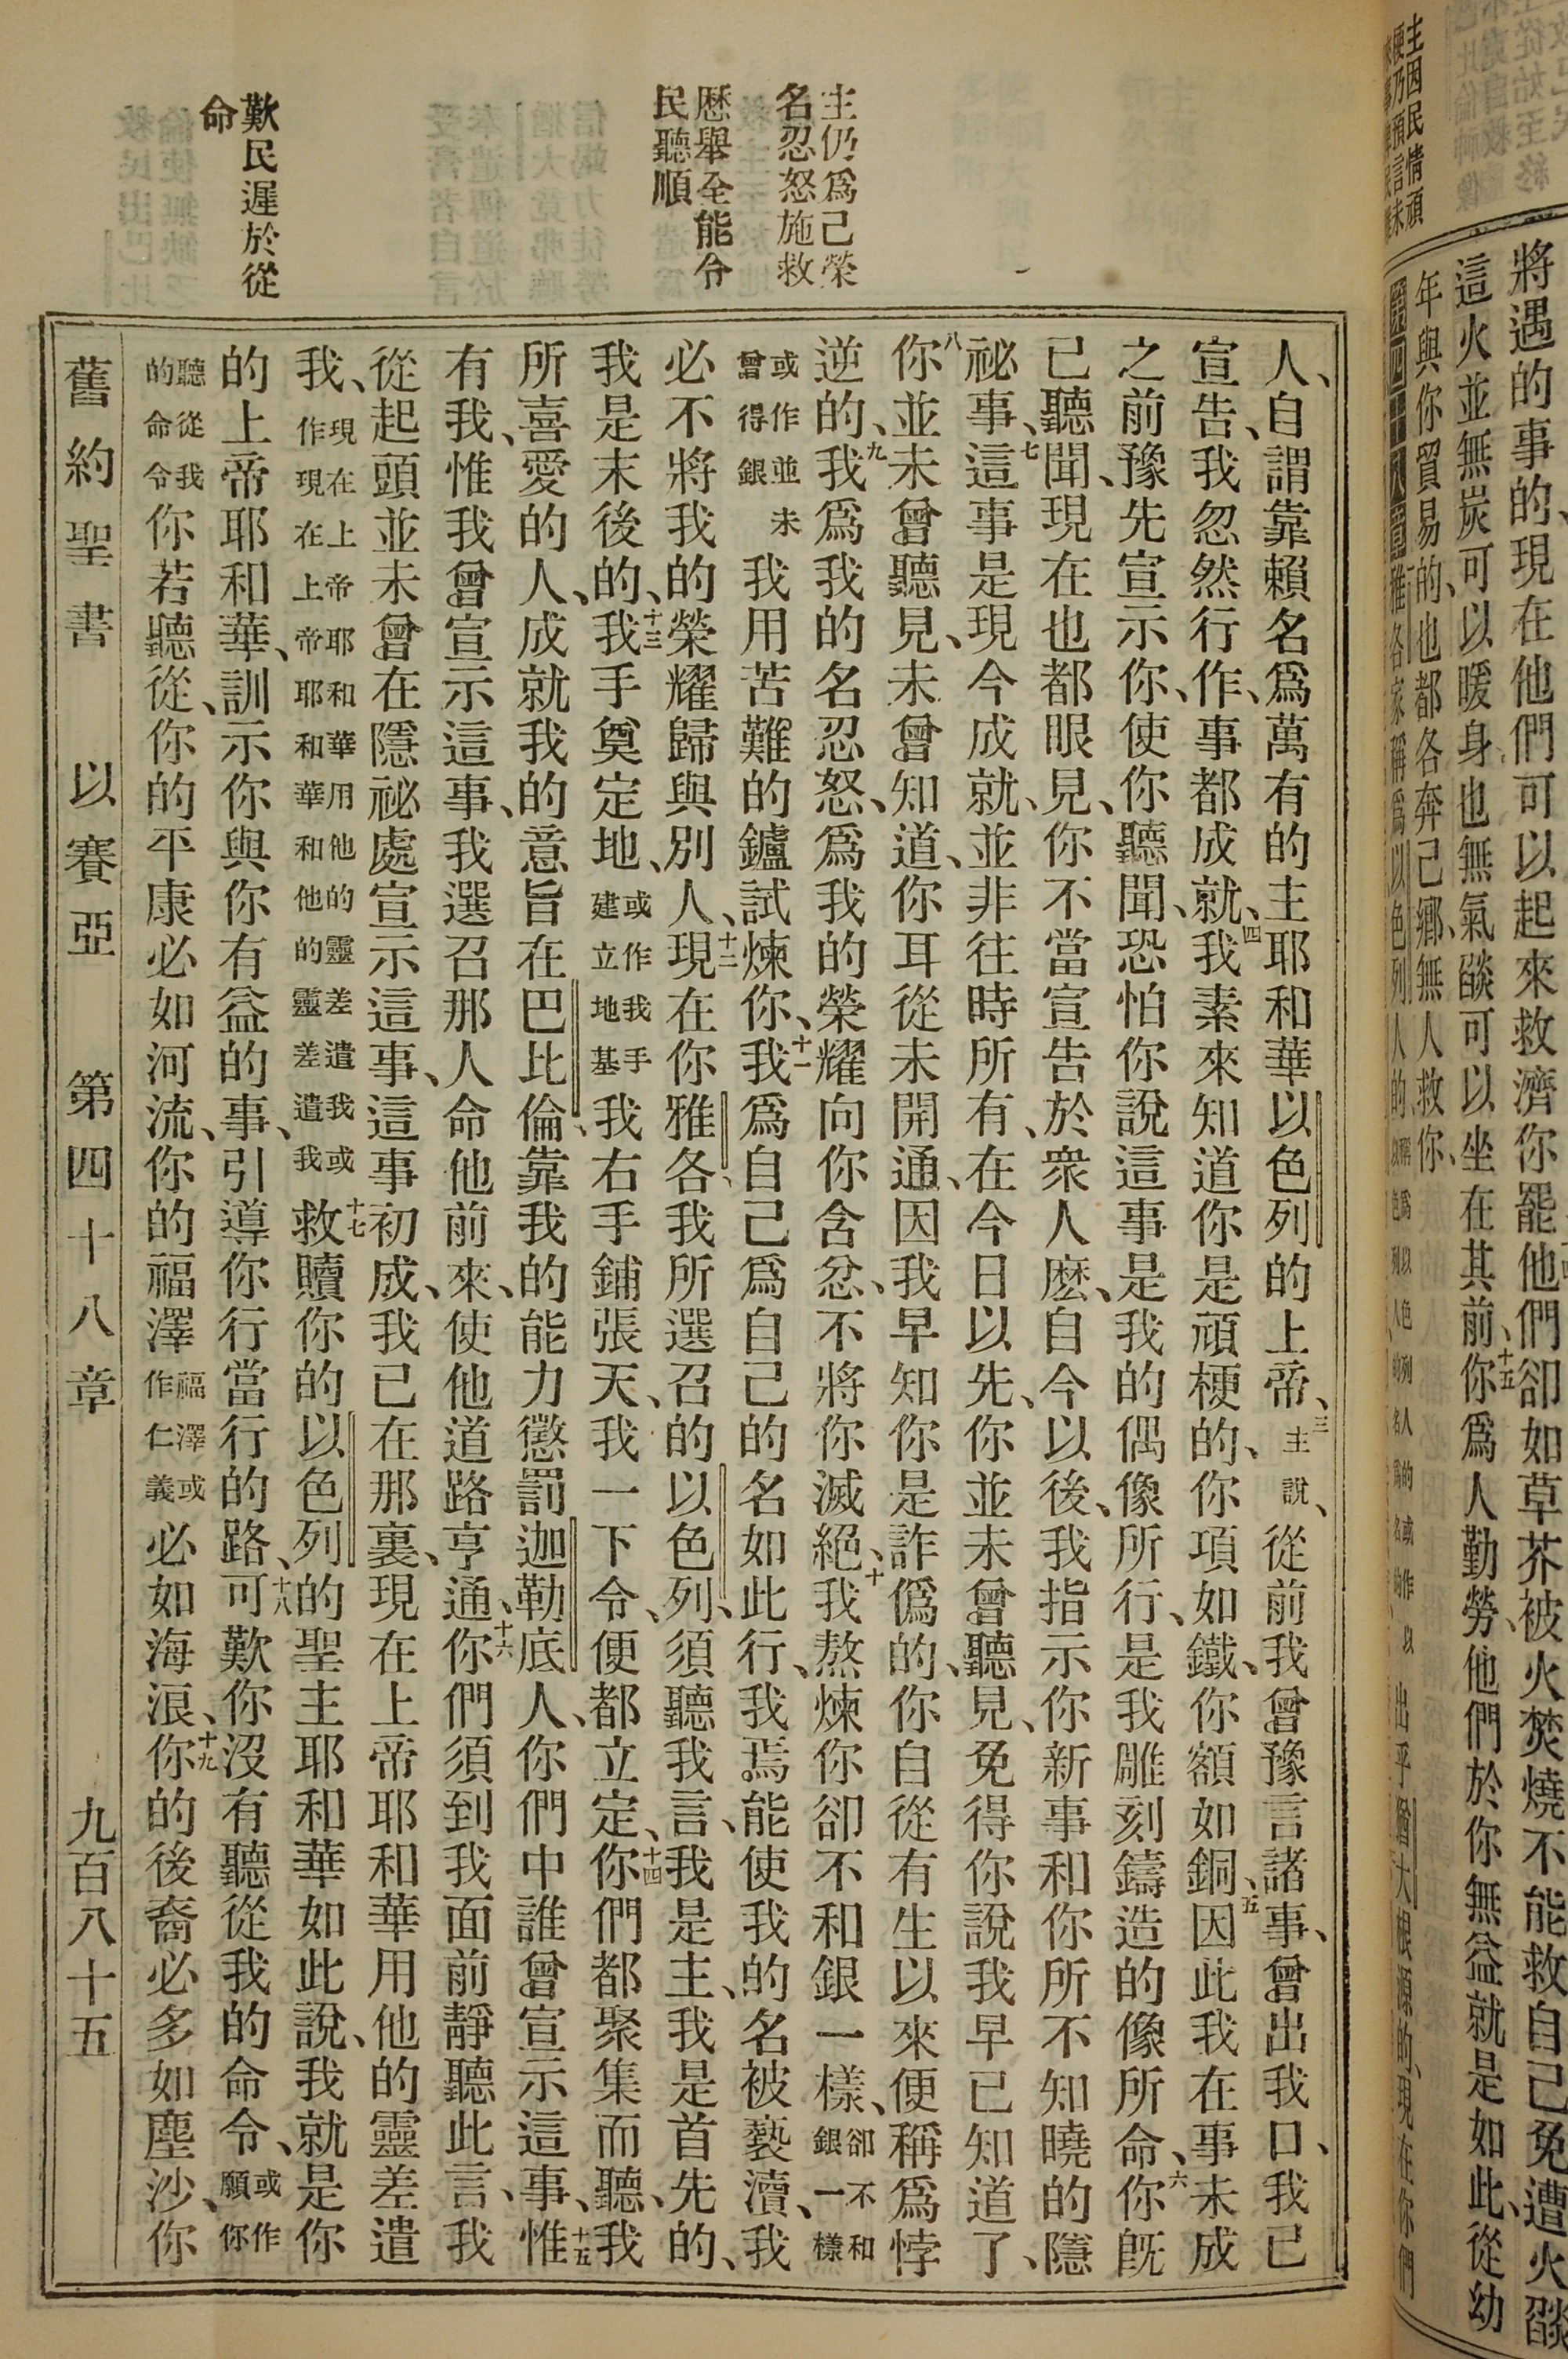 主因民情頑
將遇的事的、現在他們可以起來救濟你罷他們卻如草芥被火焚燒不能救自己免遭火燄
這火並無炭可以暖身也無氣燄可以坐在其前、十五你爲人勤勞、他們於你無益就是如此、從幼
年與你貿易的、也都各奔己鄉、無人救你、
雅各家稱爲以色列人的、出乎猶大根源的、現在你們
主仍爲己榮
名忍怒施救
歷舉全能令
民聽順
歎民遲於從
命
人、自謂靠賴名爲萬有的主耶和華以色列的上帝、三主說、從前我曾豫言諸事、曾出我口、我已
宣告、我忽然行作、事都成就、四我素來知道你是頑梗的、你項如鐵、你額如銅、五因此我在事未成
之前、豫先宣示你、使你聽聞、恐怕你說這事是我的偶像所行、是我雕刻鑄造的像所命、六你旣
已聽聞、現在也都眼見、你不當宣告於衆人麼、自今以後、我指示你新事和你所不知曉的隱
祕事、七這事是現今成就、並非往時所有、在今日以先、你並未曾聽見、免得你說我早已知道了、
八你並未曾聽見、未曾知道、你耳從未開通、因我早知你是詐僞的、你自從有生以來便稱爲悖
逆的、九我爲我的名忍怒、爲我的榮耀向你含忿、不將你滅絕、十我熬煉你卻不和銀一樣、卻不和銀一樣
或作並未曾得銀我用苦難的鑪試煉你、十一我爲自己爲自己的名如此行、我焉能使我的名被褻瀆、我
必不將我的榮耀歸與別人、十二現在你雅各、我所選召的以色列、須聽我言、我是主、我是首先的、
我是末後的、十三我手奠定地、或作我手建立地基我右手鋪張天、我一下令、便都立定、十四你們都聚集而聽、我
所喜愛的人、成就我的意旨在巴比倫、靠我的能力懲罰迦勒底人、你們中誰曾宣示這事、十五惟
有我、惟我曾宣示這事、我選召那人命他前來、使他道路亨通、十六你們須到我面前靜聽此言、我
從起頭並未曾在隱祕處宣示這事、這事初成、我已在那裏、現在上帝耶和華用他的靈差遣
我、現在上帝耶和華用他的靈差遣我或作現在上帝耶和華和他的靈差遣我十七救贖你的以色列的聖主耶和華如此說、我就是你
的上帝耶和華、訓示你與你有益的事、引導你行當行的路、十八可歎你沒有聽從我的命令、或作願你
聽從我的命令你若聽從、你的平康必如河流、你的福澤福澤或作仁義必如海浪、十九你的後裔必多如塵沙、你
舊約聖書　以賽亞　第四十八章　九百八十五